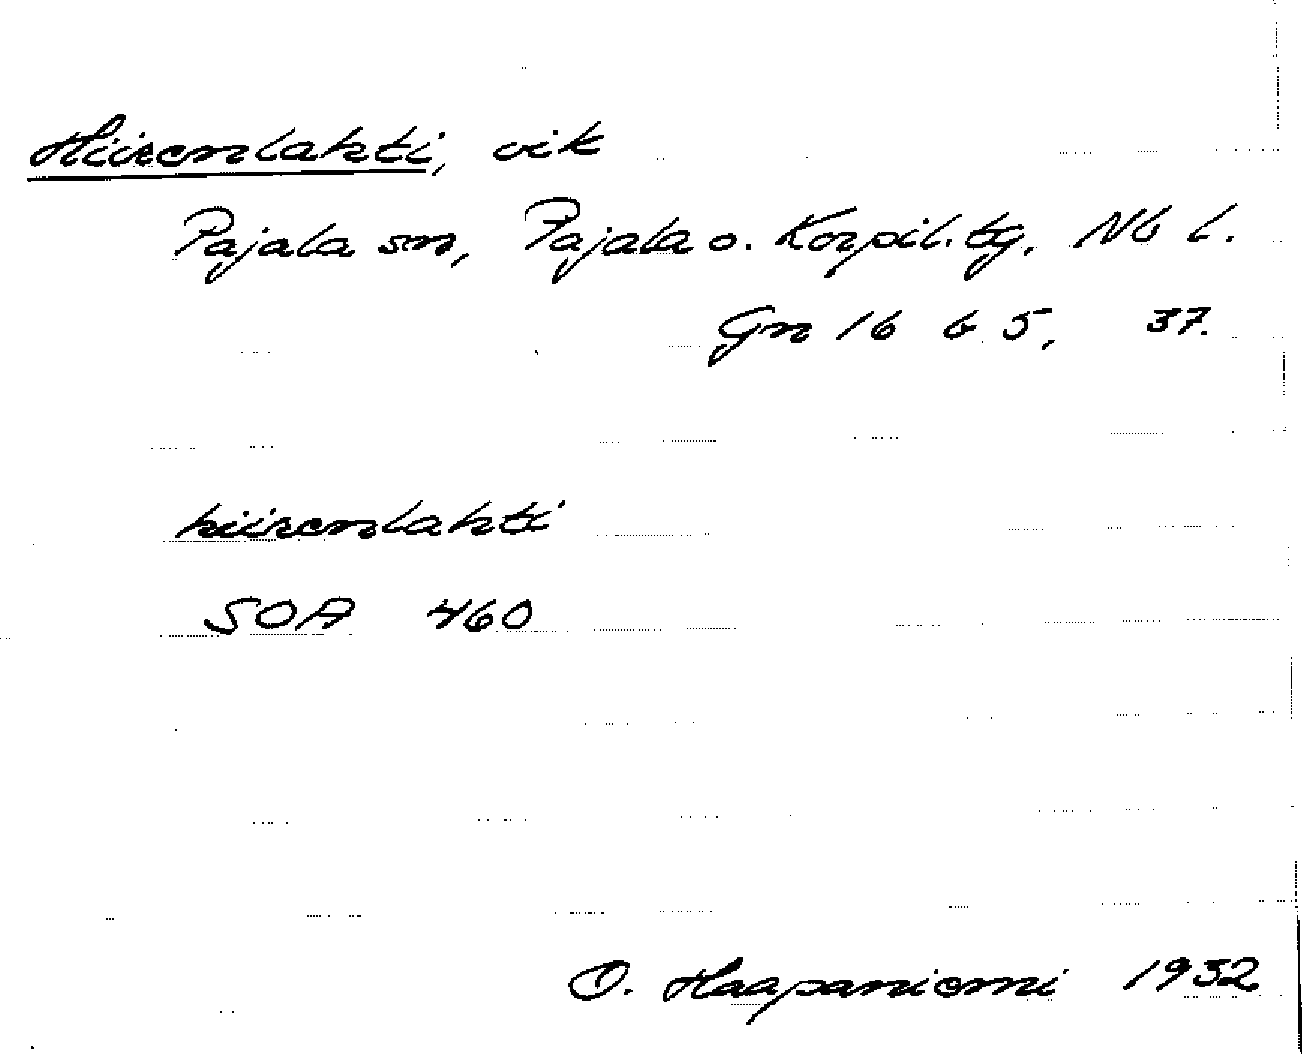 Hiirenlahti, vik
Pajala sn, Pajala o. Korpil. tg, Nb l.
Gn 16 b 5, 37.
hiirenlahti
SOA 460
O. Haapaniemi 1932